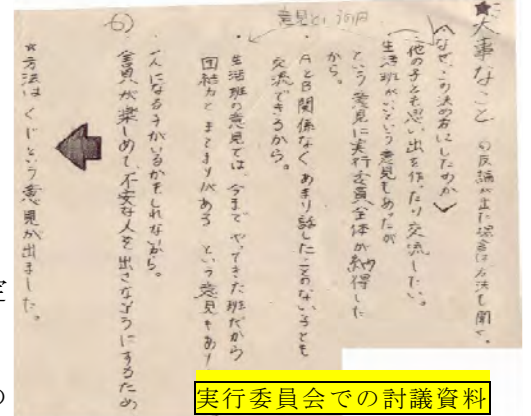 ★大事なこと の反論が出た場合は方法も聞く。
〈なぜ、この決め方にしたのか〉
・他の子とも思い出を作ったり交流したい。
生活班がいいという意見もあったが
という意見に実行委員全体が納得した
から。
・AとB関係なくあまり話したことのない子とも
交流できるから。
意見という
・生活班の意見では、今までやってきた班だから
団結力とまとまりがあるという意見もあり
・一人になる子がいるかもしれないから。
全員が楽しめて、不安な人を出さないようにするため
6)
☆方法はくじという意見が出ました。
実行委員会での討議資料
の